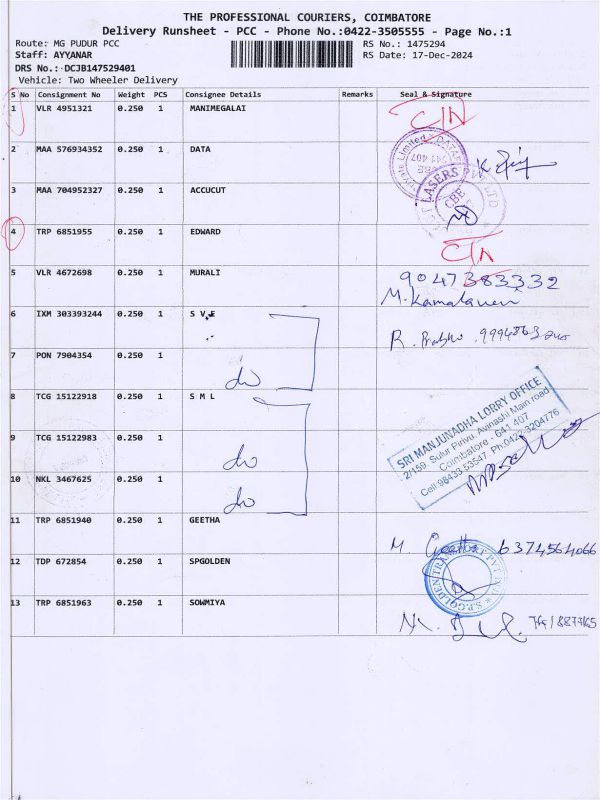 THE PROFESSIONAL COURIERS, COIMBATORE
Delivery Runsheet - PCC - Phone No.:0422-3505555 - Page No.:1
Route: MG PUDUR PCC RS No.: 1475294
Staff: AYYANAR RS Date: 17-Dec-2024
DRS No.: DCJB147529401
Vehicle: Two Wheeler Delivery
S No Consignment No Weight PCS Consignee Details Remarks Seal & Signature
1 VLR 4951321 0.250 1 MANIMEGALAI
2 MAA 576934352 0.250 1 DATA
3 MAA 704952327 0.250 1 ACCUCUT
LASERS
CBE
4 TRP 6851955 0.250 1 EDWARD
5 VLR 4672698 0.250 1 MURALI 9047383332
6 IXM 303393244 0.250 1 S V E
7 PON 7904354 0.250 1 do
8 TCG 15122918 0.250 1 S M L
SRI MANJUNADHA LORRY OFFICE
2/159, Sulur Pirivu, Avinashi Main road
Coimbatore - 641 407
Cell:98433 53547, Ph:0422-3204776
9 TCG 15122983 0.250 1 do
10 NKL 3467625 0.250 1 do
11 TRP 6851940 0.250 1 GEETHA M. Geetha 6374564066
12 TDP 672854 0.250 1 SPGOLDEN
13 TRP 6851963 0.250 1 SOWMIYA